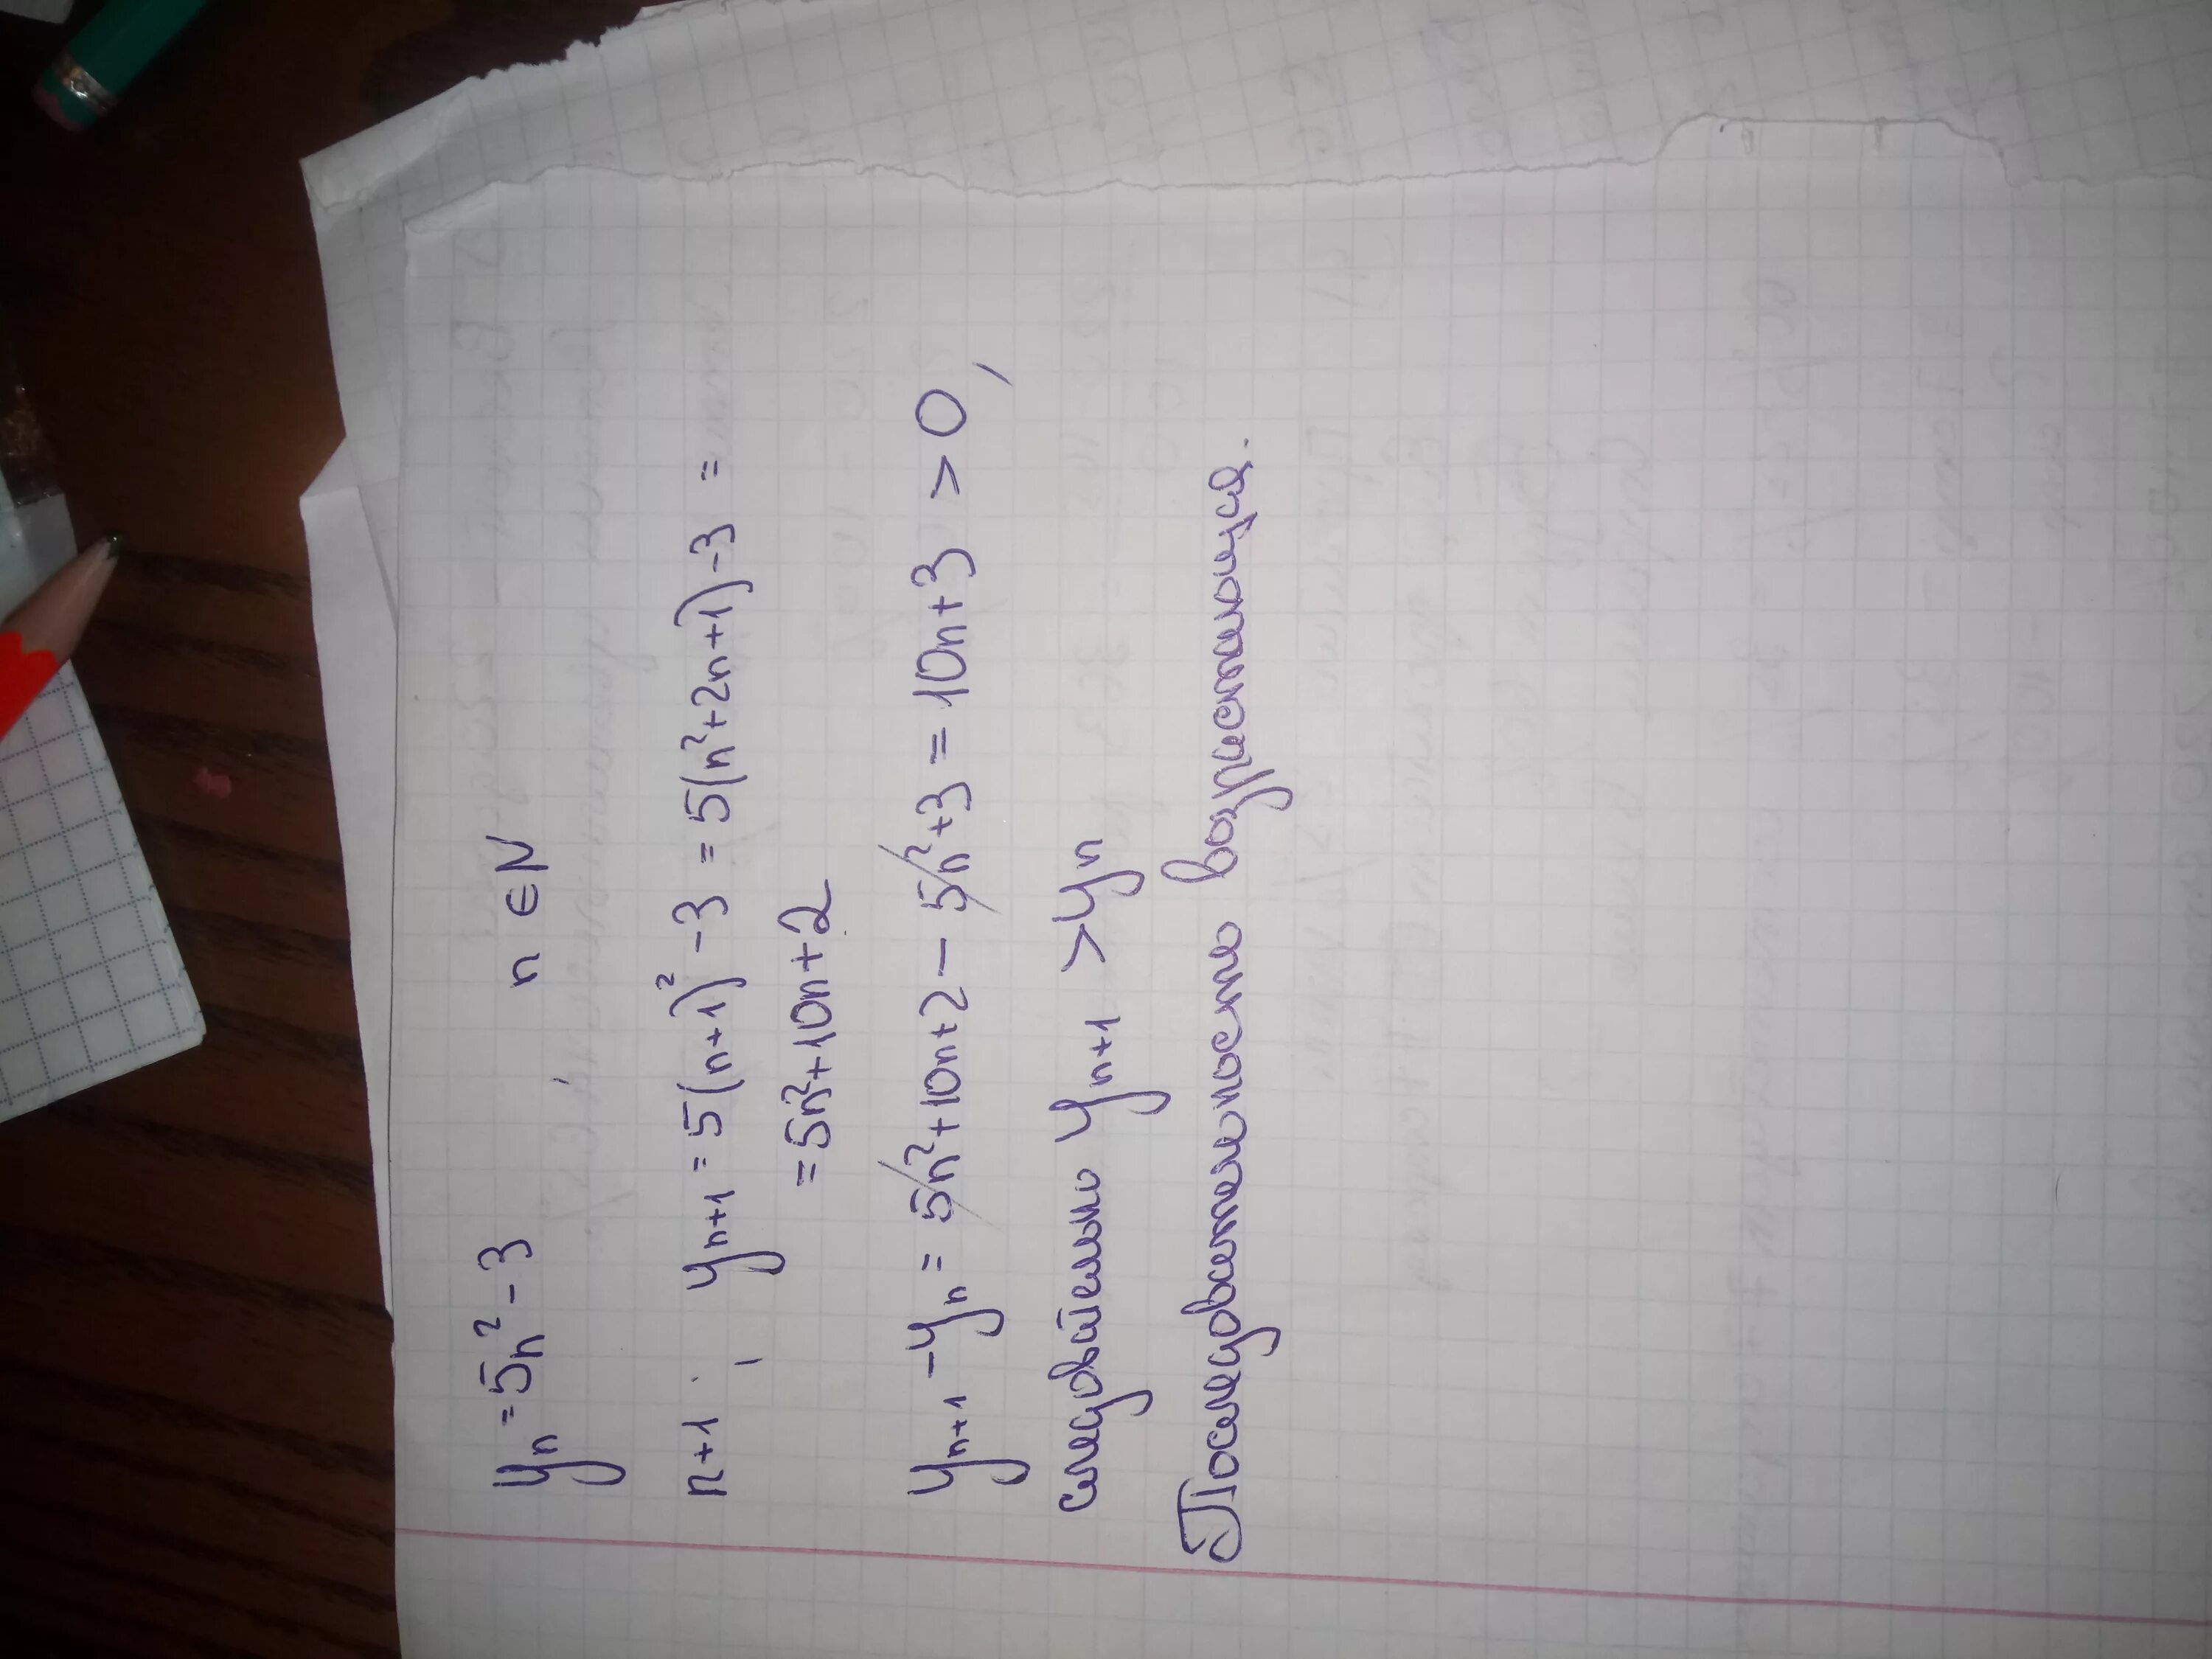 yₙ = 5n² - 3 , n ∈ N
n+1 ; yₙ₊₁ = 5(n+1)² - 3 = 5(n²+2n+1) - 3 =
= 5n²+10n+2
yₙ₊₁ - yₙ = 5n²+10n+2 - 5n²+3 = 10n+3 > 0 ,
следовательно yₙ₊₁ > yₙ
Последовательность возрастающая.